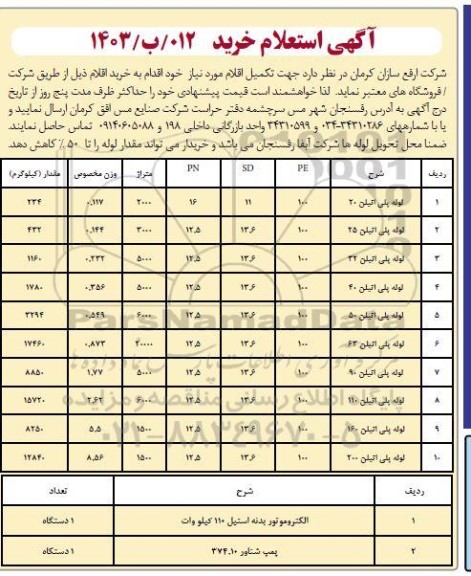 آگهی استعلام خرید ۰۱۲/ب/۱۴۰۳
شرکت ارفع سازان کرمان در نظر دارد جهت تکمیل اقلام مورد نیاز خود اقدام به خرید اقلام ذیل از طریق شرکت
/ فروشگاه های معتبر نماید. لذا خواهشمند است قیمت پیشنهادی خود را حداکثر ظرف مدت پنج روز از تاریخ
درج آگهی به آدرس رفسنجان شهر مس سرچشمه دفتر حراست شرکت صنایع مس افق کرمان ارسال نمایید و
یا با شماره‌های ۳۴۳۱۰۲۸۶-۰۳۴ و ۳۴۳۱۰۵۹۹ واحد بازرگانی داخلی ۱۹۸ و ۰۹۱۴۰۶۰۵۰۸۸ تماس حاصل نمایند.
ضمنا محل تحویل لوله ها شرکت آبفا رفسنجان می باشد و خریدار می تواند مقدار لوله را تا ۵۰ ٪ کاهش دهد.
ردیف شرح PE SD PN متراژ وزن مخصوص مقدار (کیلوگرم)
۱ لوله پلی اتیلن ۲۰ ۱۰۰ ۱۱ ۱۶ ۲۰۰۰ ۰,۱۱۷ ۲۳۴
۲ لوله پلی اتیلن ۲۵ ۱۰۰ ۱۳,۶ ۱۲,۵ ۳۰۰۰ ۰,۱۴۴ ۴۳۲
۳ لوله پلی اتیلن ۳۲ ۱۰۰ ۱۳,۶ ۱۲,۵ ۵۰۰۰ ۰,۲۳۲ ۱۱۶۰
۴ لوله پلی اتیلن ۴۰ ۱۰۰ ۱۳,۶ ۱۲,۵ ۵۰۰۰ ۰,۳۵۶ ۱۷۸۰
۵ لوله پلی اتیلن ۵۰ ۱۰۰ ۱۳,۶ ۱۲,۵ ۶۰۰۰ ۰,۵۴۹ ۳۲۹۴
۶ لوله پلی اتیلن ۶۳ ۱۰۰ ۱۳,۶ ۱۲,۵ ۲۰۰۰۰ ۰,۸۷۳ ۱۷۴۶۰
۷ لوله پلی اتیلن ۹۰ ۱۰۰ ۱۳,۶ ۱۲,۵ ۵۰۰۰ ۱,۷۷ ۸۸۵۰
۸ لوله پلی اتیلن ۱۱۰ ۱۰۰ ۱۳,۶ ۱۲,۵ ۶۰۰۰ ۲,۶۲ ۱۵۷۲۰
۹ لوله پلی اتیلن ۱۶۰ ۱۰۰ ۱۳,۶ ۱۲,۵ ۱۵۰۰ ۵,۵ ۸۲۵۰
۱۰ لوله پلی اتیلن ۲۰۰ ۱۰۰ ۱۳,۶ ۱۲,۵ ۱۵۰۰ ۸,۵۶ ۱۲۸۴۰
ParsNamadData
پایگاه اطلاع رسانی مناقصه و مزایده
۰۲۱-۸۸۳۴۹۶۷۰-۵
ردیف شرح تعداد
۱ الکتروموتور بدنه استیل ۱۱۰ کیلو وات ۱ دستگاه
۲ پمپ شناور ۳۷۴،۱۰ ۱ دستگاه